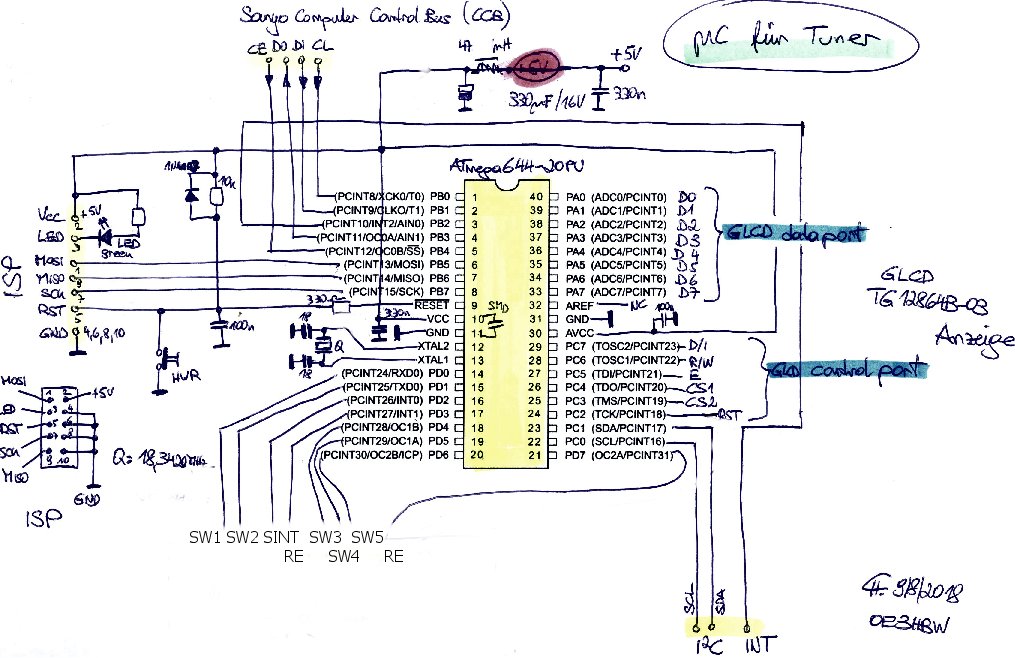 Sanyo Computer Control Bus (CCB)
µC für Tuner
CE DO DI CL
47 mH
+5V
+5V
330µF/16V
330n
ATmega644-20PU
10k
Vcc +5V
LED
LED
green
MOSI
MISO
SCK
RST
GND 4,6,8,10
ISP
330n
100n
HWR
18
Q
18
330n
SMD
(PCINT8/XCK0/T0) PB0 1
(PCINT9/CLKO/T1) PB1 2
(PCINT10/INT2/AIN0) PB2 3
(PCINT11/OC0A/AIN1) PB3 4
(PCINT12/OC0B/SS) PB4 5
(PCINT13/MOSI) PB5 6
(PCINT14/MISO) PB6 7
(PCINT15/SCK) PB7 8
RESET 9
VCC 10
GND 11
XTAL2 12
XTAL1 13
(PCINT24/RXD0) PD0 14
(PCINT25/TXD0) PD1 15
(PCINT26/INT0) PD2 16
(PCINT27/INT1) PD3 17
(PCINT28/OC1B) PD4 18
(PCINT29/OC1A) PD5 19
(PCINT30/OC2B/ICP) PD6 20
40 PA0 (ADC0/PCINT0) D0
39 PA1 (ADC1/PCINT1) D1
38 PA2 (ADC2/PCINT2) D2
37 PA3 (ADC3/PCINT3) D3
36 PA4 (ADC4/PCINT4) D4
35 PA5 (ADC5/PCINT5) D5
34 PA6 (ADC6/PCINT6) D6
33 PA7 (ADC7/PCINT7) D7
32 AREF NC
31 GND 100n
30 AVCC
29 PC7 (TOSC2/PCINT23) D/I
28 PC6 (TOSC1/PCINT22) R/W
27 PC5 (TDI/PCINT21) E
26 PC4 (TDO/PCINT20) CS1
25 PC3 (TMS/PCINT19) CS2
24 PC2 (TCK/PCINT18) RST
23 PC1 (SDA/PCINT17)
22 PC0 (SCL/PCINT16)
21 PD7 (OC2A/PCINT31)
GLCD dataport
GLCD
TG12864B-03
Anzeige
GLCD control port
MOSI 1 2 +5V
LED 3 4
RST 5 6
SCK 7 8
MISO 9 10
GND
ISP
SW1 SW2 SINT SW3 SW5
RE SW4 RE
SCL SDA
I²C INT
9/8/2018
OE3HBW